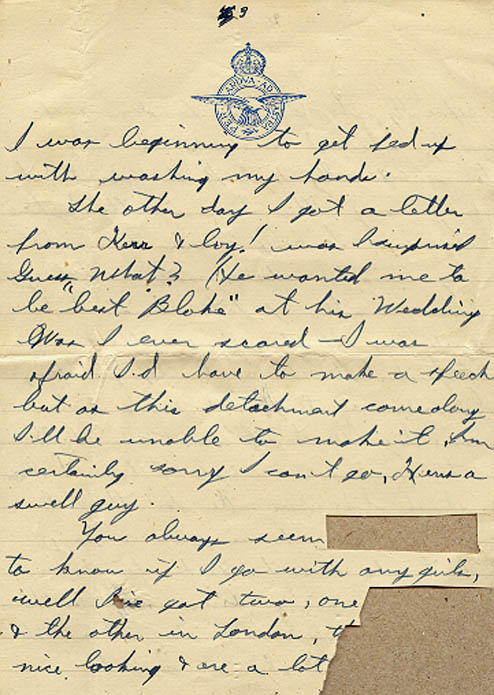 3
PER ARDVA AD ASTRA
I was beginning to get fed up
with washing my hands.
The other day I got a letter
from Kerr & boy! was I surprised
Guess What? He wanted me to
be "best Bloke" at his Wedding
Was I ever scared — I was
afraid I'd have to make a speech
but as this detachment came along
I'll be unable to make it, I'm
certainly sorry I can't go, He's a
swell guy.
You always seem
to know if I go with any girls,
well I've got two, one
& the other in London,
nice looking & are a lot